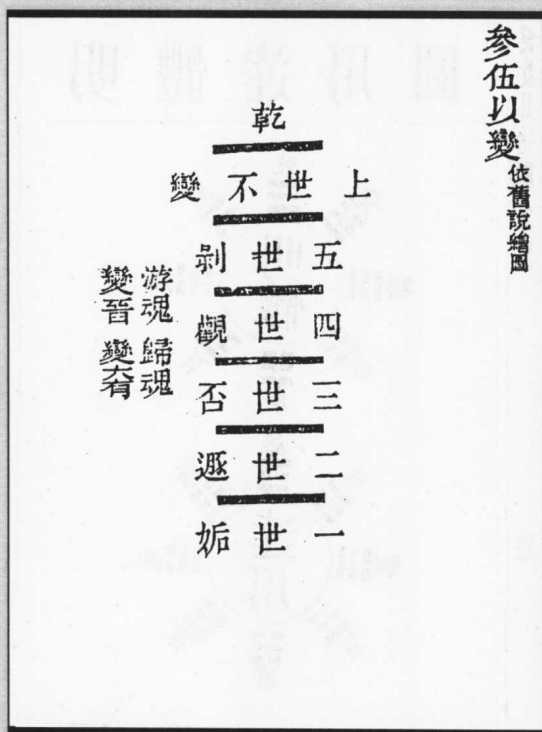 參伍以變 依舊說繪圖
乾
上世不變
五世剥
四世觀
三世否
二世遯
一世姤
游魂 歸魂
變晉 變大有